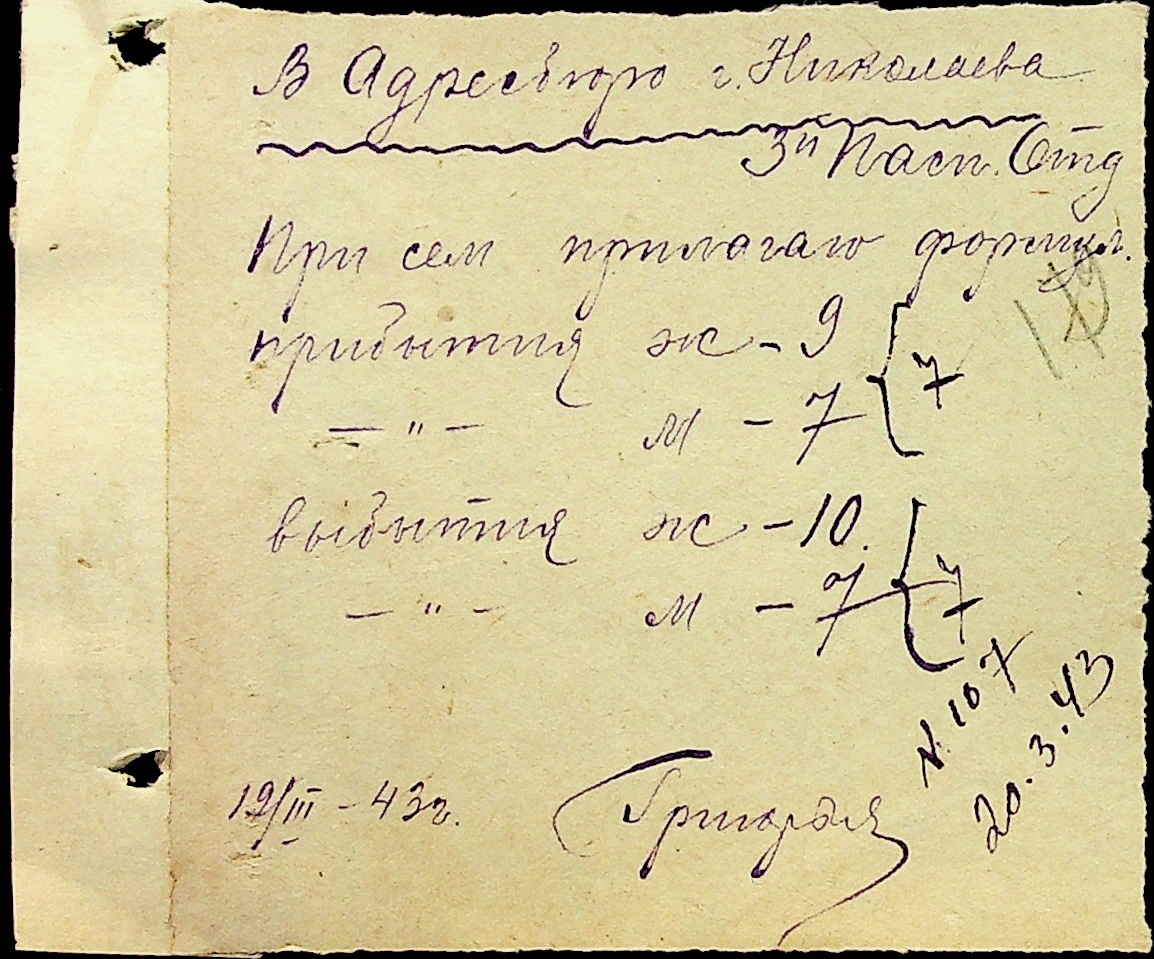 В Адресбюро г. Николаева
3й Пасп. Отд
При сем прилагаю формул.
179
прибытия ж - 9
7
— " — м - 7
выбытия ж - 10.
7
— " — м - 7
N. 107
20.3.43
19/III - 43г.